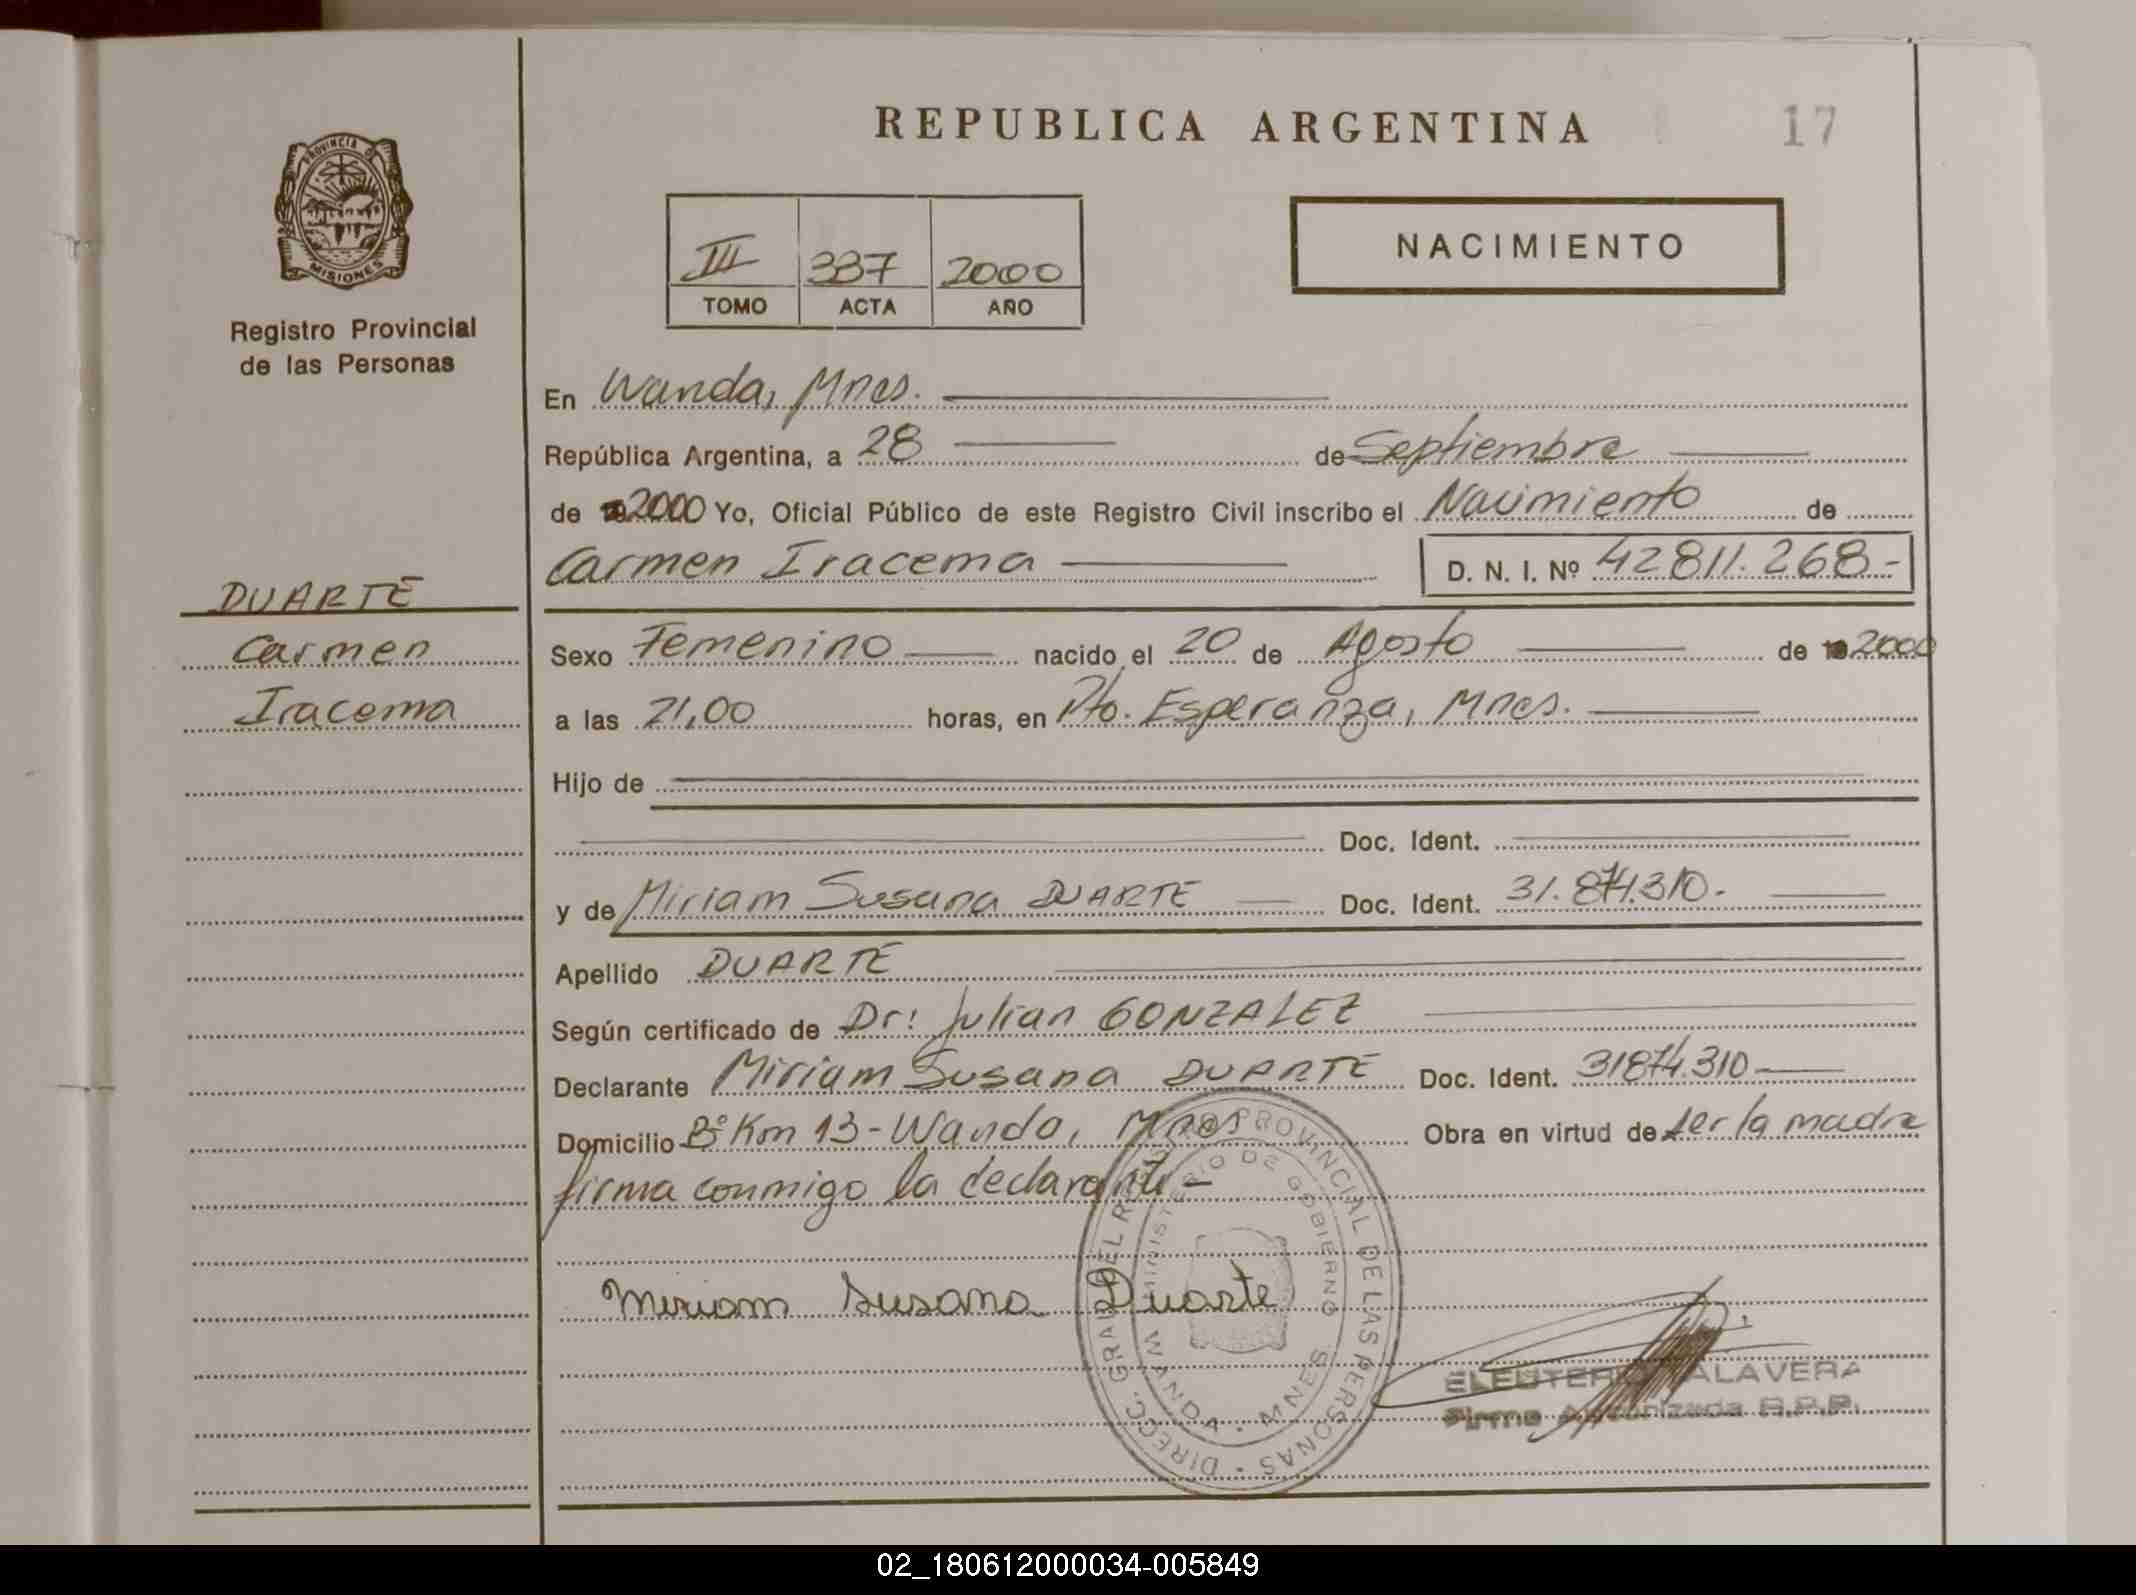 REPUBLICA ARGENTINA
17
PROVINCIA DE
MISIONES
Registro Provincial
de las Personas
III 337 2000
TOMO ACTA AÑO
NACIMIENTO
En Wanda, Mnes.
República Argentina, a 28 de Septiembre
de 2000 Yo, Oficial Público de este Registro Civil inscribo el Nacimiento de
Carmen Iracema D. N. I. Nº 42811.268-
DUARTE
Carmen
Iracema
Sexo Femenino nacido el 20 de Agosto de 2000
a las 21,00 horas, en Pto. Esperanza, Mnes.
Hijo de
Doc. Ident.
y de Miriam Susana DUARTE Doc. Ident. 31.874.310.-
Apellido DUARTE
Según certificado de Dr: Julian GONZALEZ
Declarante Miriam Susana DUARTE Doc. Ident. 31874.310
Domicilio Bº Km 13-Wanda, Mnes Obra en virtud de ser la madre
firma conmigo la declarante-
Miriam Susana Duarte
DIRECC. GRAL DEL REGISTRO PROVINCIAL DE LAS PERSONAS
MINISTERIO DE GOBIERNO
WANDA - MNES
ELEUTERIO TALAVERA
Firma Autorizada R.P.P.
02_180612000034-005849